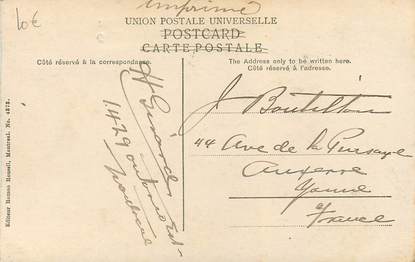 10€
Imprimé
UNION POSTALE UNIVERSELLE
POSTCARD
CARTE POSTALE
Côté réservé à la correspondance.
The Address only to be written here.
Côté réservé à l'adresse.
H Girard
1479
Montreal
J Boutillon
44 Ave de la
Auxerre
Yonne
France
Editeur Romeo Roussil, Montreal. No.